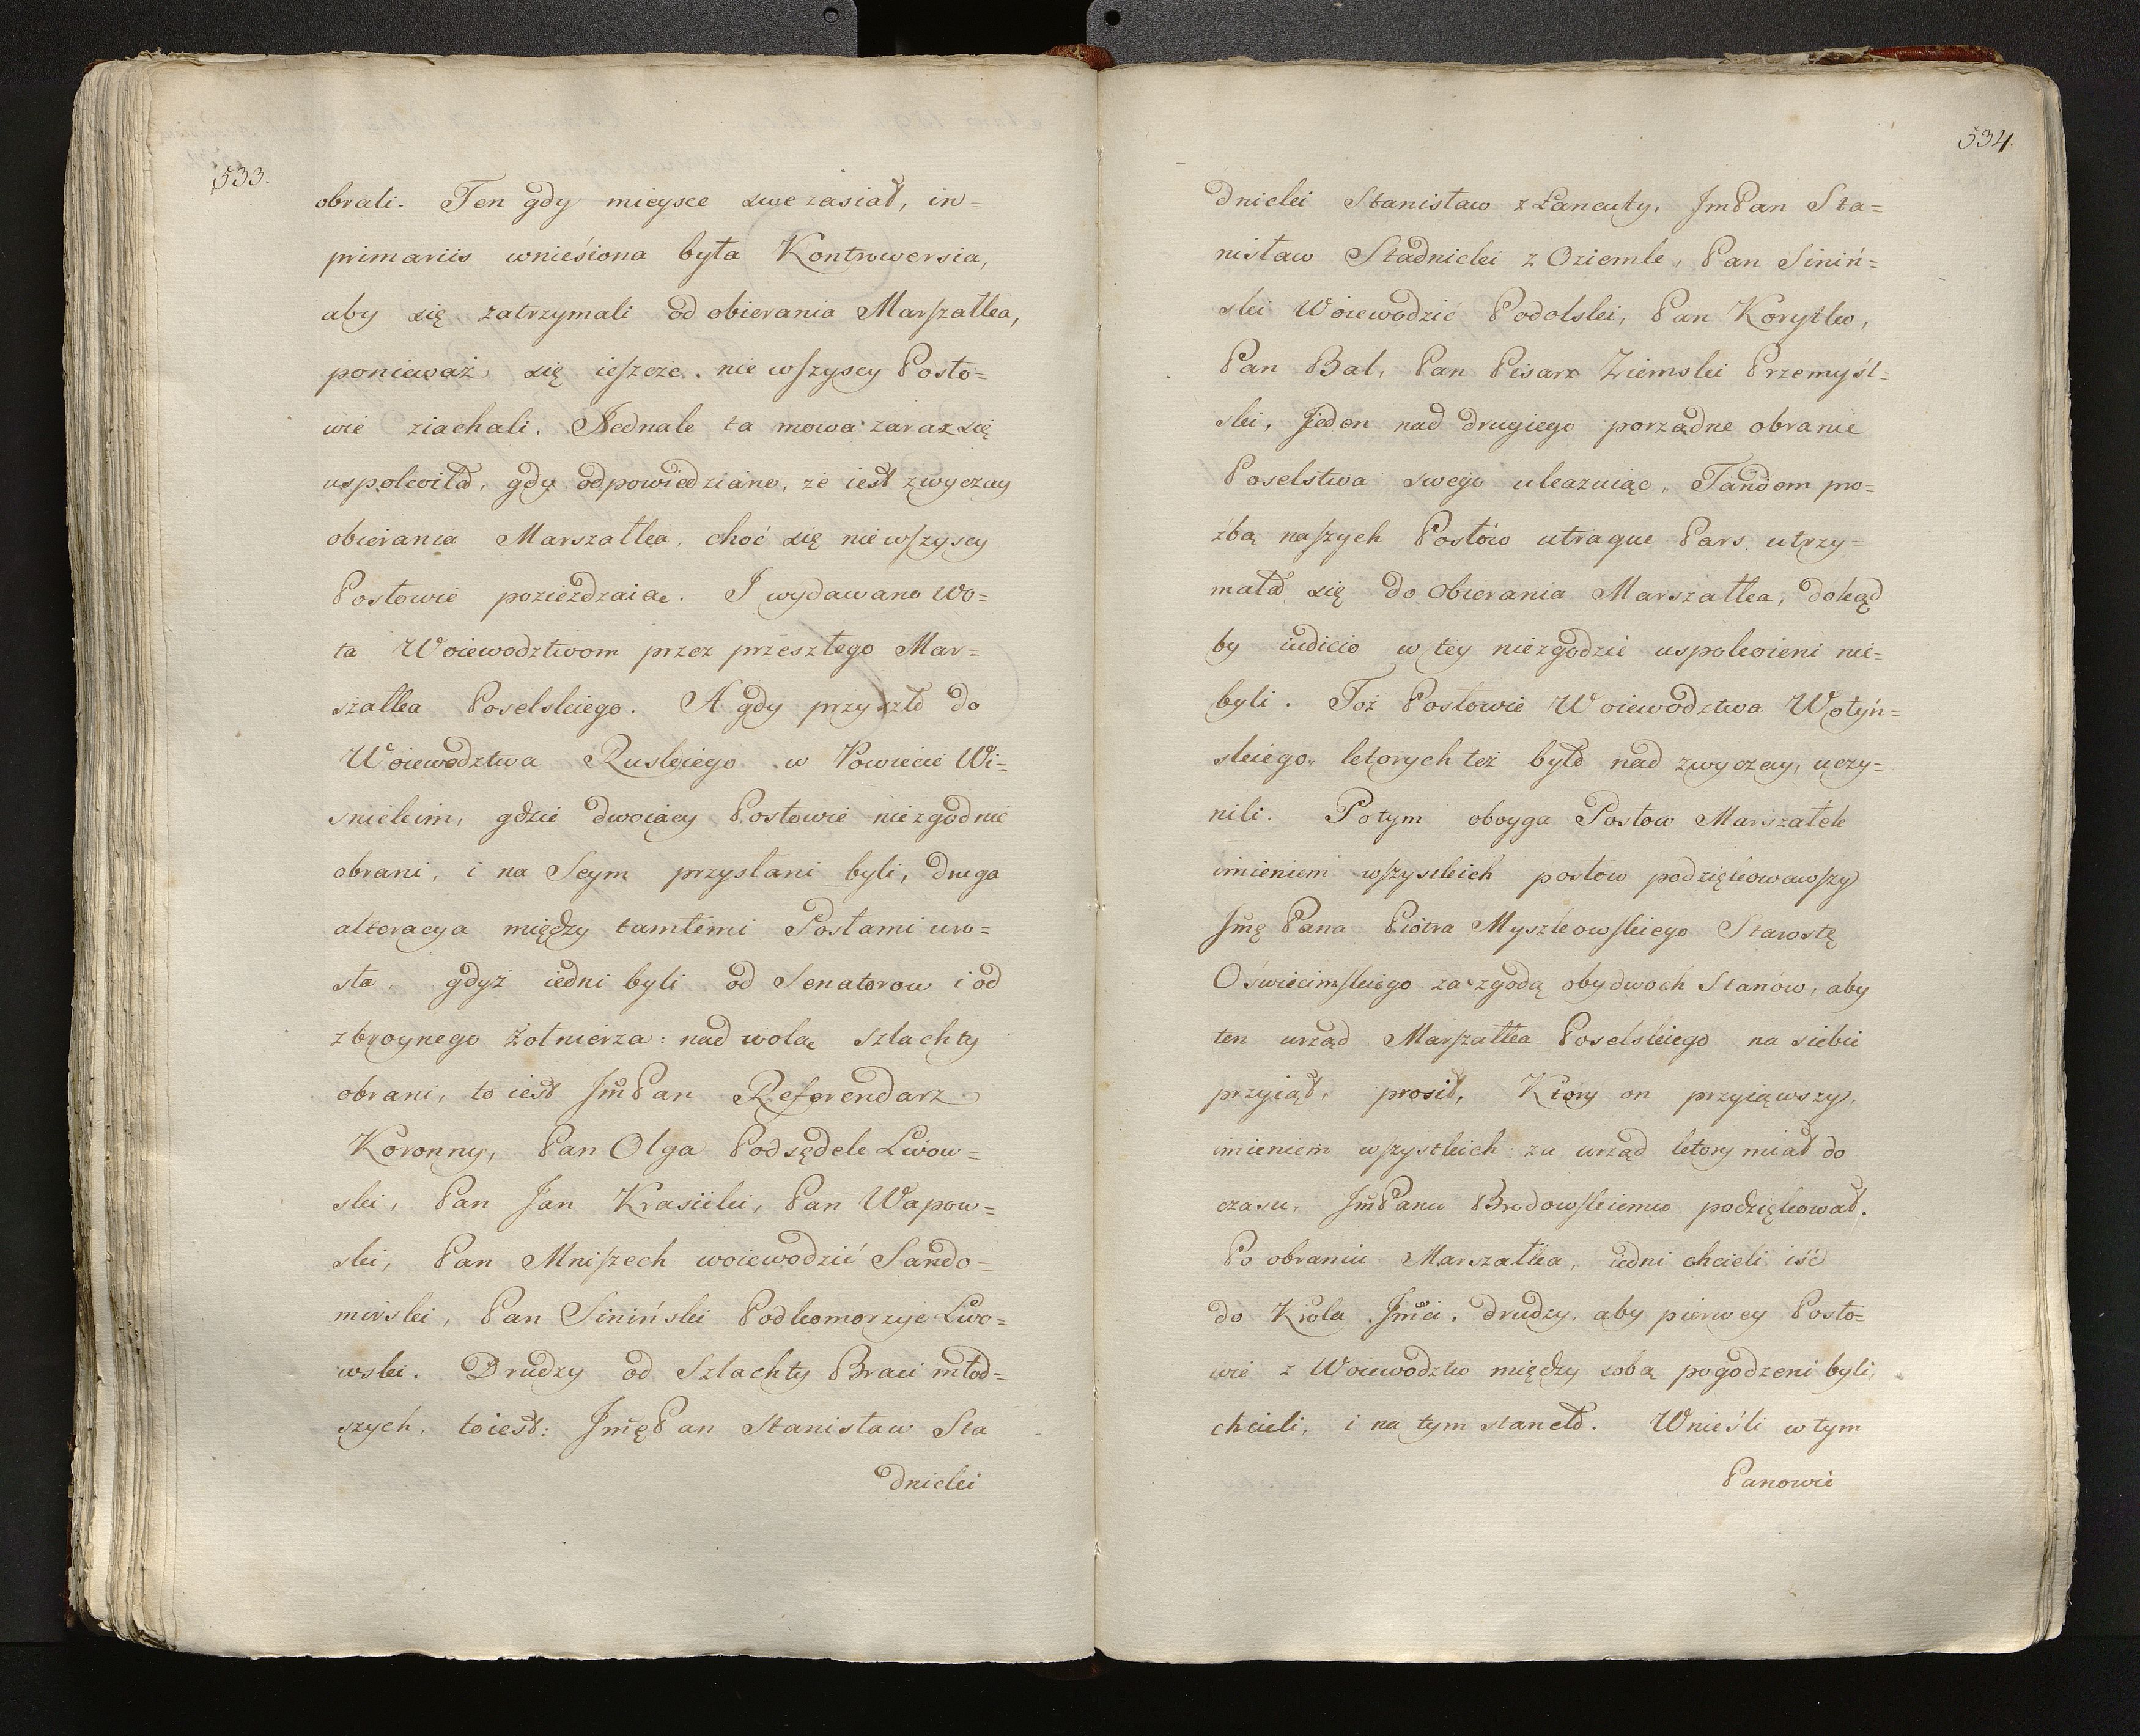 533.
obrali. Ten gdy mieysce swe zasiadł, in=
primariis wnieśiona była Kontrowersia,
aby się zatrzymali od obierania Marszałka,
ponieważ się ieszcze nie wszyscy Posło=
wie ziachali. Jednak ta mowa zaraz się
uspokoiła, gdy odpowiedziano, że iest zwyczay
obierania Marszałka, choć się nie wszyscy
Posłowie pozieżdzaią. I wydawano Wo=
ta Woiewodztwom przez przeszłego Mar=
szałka Poselskiego. A gdy przyszło do
Woiewodztwa Ruskiego w Powiecie Wi=
snickim, gdzie dwoiacy Posłowie niezgodnie
obrani, i na Seym przysłani byli, druga
alteracya między tamtemi Posłami uro=
sła, gdyż iedni byli od Senatorow i od
zbroynego żołnierza: nad wolą szlachty
obrani, to iest Jm̃ Pan Referendarz
Koronny, Pan Olga Podsędek Lwow=
ski, Pan Jan Krasicki, Pan Wapow=
ski, Pan Mniszech woiewodzić Sando=
mirski, Pan Siniński Podkomorzyc Lwo=
wski. Drudzy od Szlachty Braci młod=
szych, to iest: Jm̃ę Pan Stanisław Sta
dnicki
534.
dnicki Stanisław z Łancuty, Jm Pan Sta=
nisław Stadnicki z Oziemle, Pan Siniń=
ski Woiewodzić Podolski, Pan Korytko,
Pan Bal, Pan Pisarz Ziemski Przemyśl=
ski, Jeden nad drugiego porządne obranie
Poselstwa swego ukazuiąc, Tandem pro=
źbą naszych Posłów utraque Pars utrzy=
mała się do Obierania Marszałka, dokąd
by iudicio w tey niezgodzie uspokoieni nie=
byli. Toż Posłowie Woiewodztwa Wołyń=
skiego, ktorych też było nad zwyczay, uczy=
nili. Potym oboyga Posłow Marszałek
imieniem wszystkich posłow podziękowawszy
Jm̃ę Pana Piotra Myszkowskiego Starostę
Oświecimskiego za zgodą obydwoch Stanów, aby
ten urząd Marszałka Poselskiego na siebie
przyiął, prosił, Ktory on przyiąwszy,
imieniem wszystkich za urząd ktory miał do
czasu, Jm̃ Panu Brodowskiemu podziękował.
Po obraniu Marszałka, iedni chcieli iść
do Krola Jm̃ci, drudzy, aby pierwey Posło=
wie z Woiewodztw między sobą pogodzeni byli,
chcieli, i na tym staneło. Wnieśli w tym
Panowie